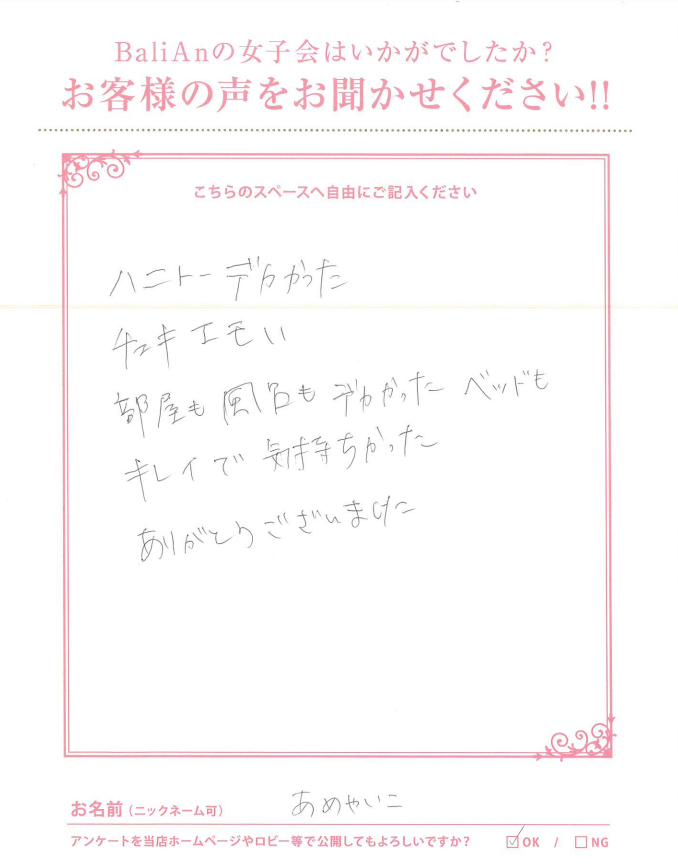 BaliAnの女子会はいかがでしたか?
お客様の声をお聞かせください!!
こちらのスペースへ自由にご記入ください
ハニトーデカかった
チェキエモい
部屋も風呂もデカかった ベッドも
キレイで気持ちかった
ありがとうございました
お名前(ニックネーム可) あめやいこ
アンケートを当店ホームページやロビー等で公開してもよろしいですか? ☑OK / □NG